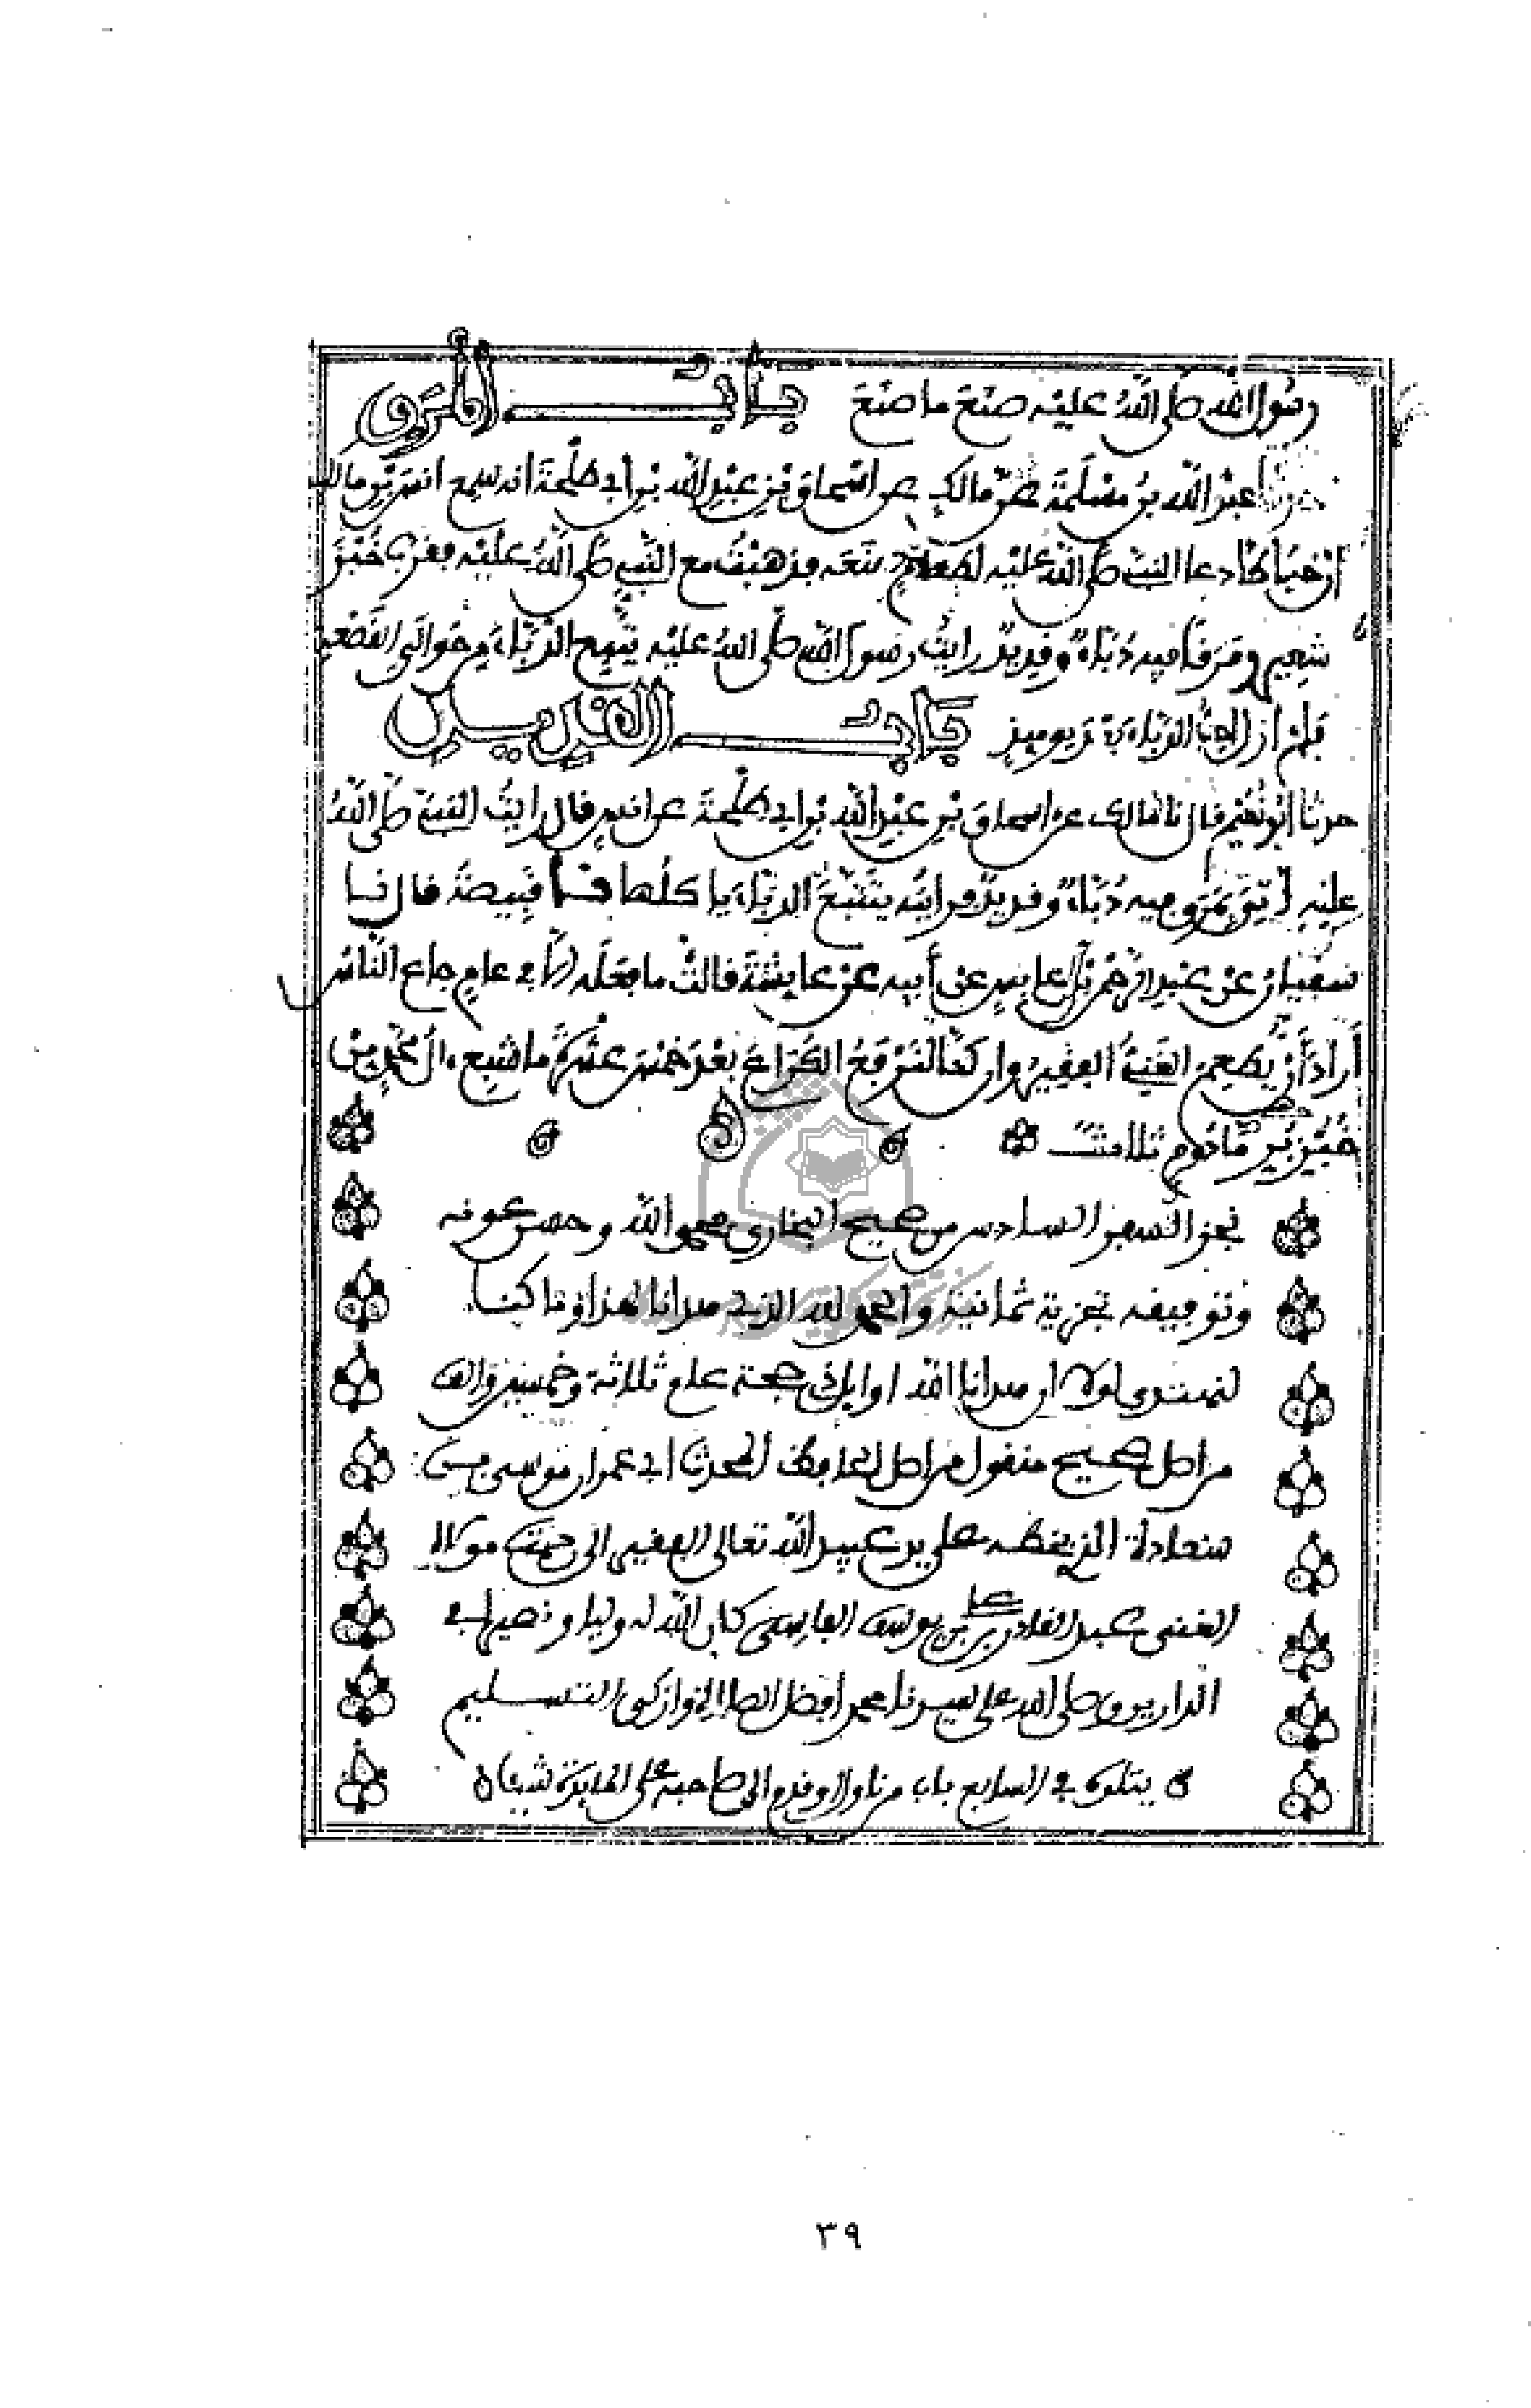 رسول الله صلى الله عليه صنع ما صنع باب المرق
حدثنا عبد الله بن مسلمة عن مالك عن اسحاق بن عبد الله بن أبي طلحة انه سمع انس بن مالك
أن خياطا دعا النبي صلى الله عليه لطعام صنعه فذهبت مع النبي صلى الله عليه فقرب خبز
شعير ومرقا فيه دباء وقديد رايت رسول الله صلى الله عليه يتبع الدباء من حوالي القصعة
فلم أزل احب الدباء بعد يوميذ باب القديد
حدثنا أبو نعيم قال نا مالك عن اسحاق بن عبد الله بن ابي طلحة عن انس قال رايت النبي صلى الله
عليه أتي بمرق فيه دباء وقديد فرايته يتتبع الدباء ياكلها نا قبيصة قال نا
سفيان عن عبد الرحمن بن عابس عن أبيه عن عايشة قالت ما فعله إلا في عام جاع الناس
أراد أن يطعم الغني الفقير وان كنا لنرفع الكراع بعد خمس عشرة ما شبع ءال محمد من
خبز بر مأدوم ثلاثا
نجز السفر السادس من صحيح البخاري بحمد الله وحسن عونه
وتوفيقه تجزية ثمانية والحمد لله الذي هدانا لهذا وما كنا
لنهتدي لولا ان هدانا الله اوايل حجة عام ثلاثة وخمسين والف
من اصل صحيح منقول من اصل الحافظ المحدث ابي عمران موسى بن
سعادة الذي بخطه على يد عبيد الله تعالى الفقير الى رحمة مولاه
الغني عبد القادر بن علي بن يوسف الفاسي كان الله له وليا ونصيرا في
الدارين وصلى الله على سيدنا محمد افضل الصلاة وازكى التسليم
يتلوه في السابع باب من ناول او قدم الى صاحبه على المايدة شيئا
٣٩